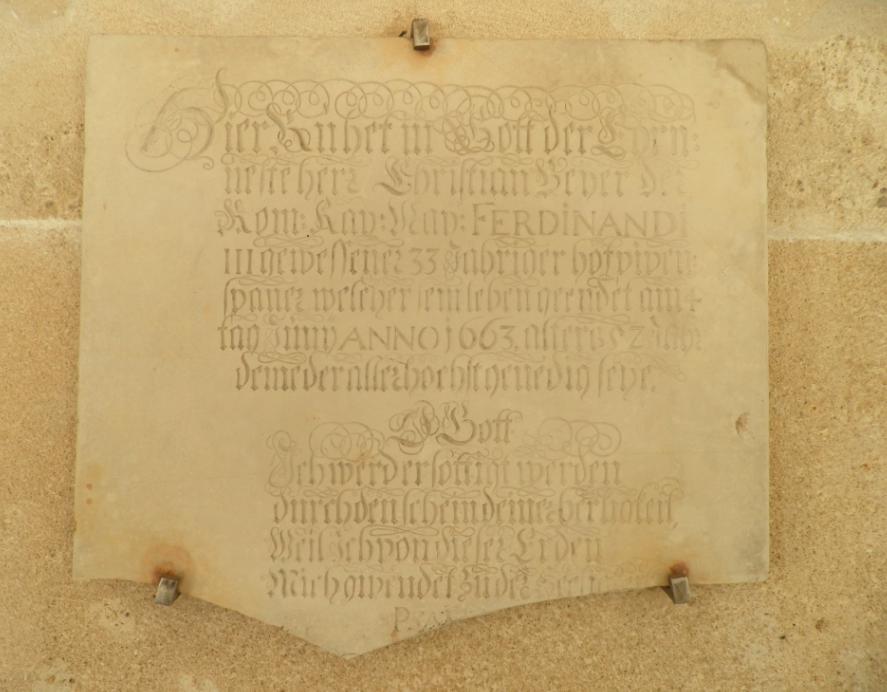 Hier Ruhet in Gott der Ehrn:
veste herr Christian Beyer der
Rom: Kay: May: FERDINANDi
III gewessener 33 Jahriger hof
spaner welcher sein leben geendet am 4
tag Juny ANNO 1663. alters 52 Jahr
deme der allerhochst genedig seye.
O Gott
Ich werd ersöttigt werden
durch den schein deiner
Weil Ich von dieser Erden
Mich gwendet zu der